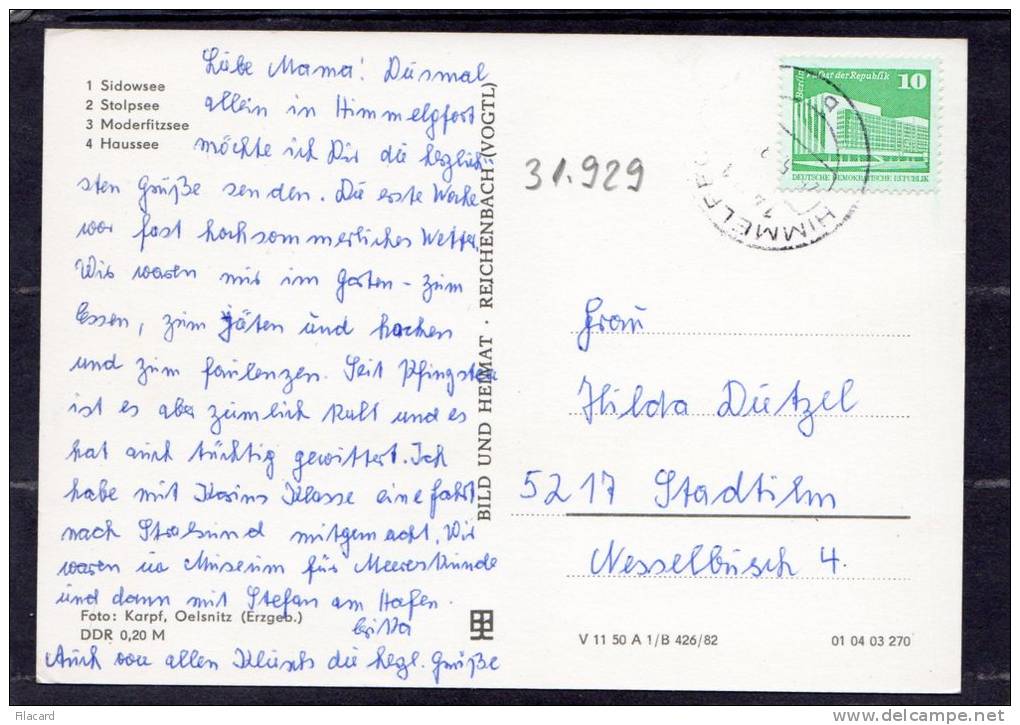 1 Sidowsee
2 Stolpsee
3 Moderfitzsee
4 Haussee
Liebe Mama! Diesmal
allein in Himmelpfort
möchte ich Dir die herzlich-
sten Grüße senden. Die erste Woche
war fast hochsommerliches Wetter.
Wir waren nur im Garten - zum
Essen, zum Jäten und hacken
und zum faulenzen. Seit Pfingsten
ist es aber ziemlich kalt und es
hat auch tüchtig gewittert. Ich
habe mit Karins Klasse eine fahrt
nach Stralsund mitgemacht. Wir
waren im Museum für Meereskunde
und dann mit Stefan am Hafen.
Foto: Karpf, Oelsnitz (Erzgeb.)
DDR 0,20 M
Auch von allen die herzl. Grüße
BILD UND HEIMAT · REICHENBACH (VOGTL)
31.929
Berlin Palast der Republik 10
DEUTSCHE DEMOKRATISCHE REPUBLIK
Frau
Hilda Dietzel
5217 Stadtilm
Nesselbusch 4.
V 11 50 A 1/B 426/82
01 04 03 270
Filacard
www.delcampe.net